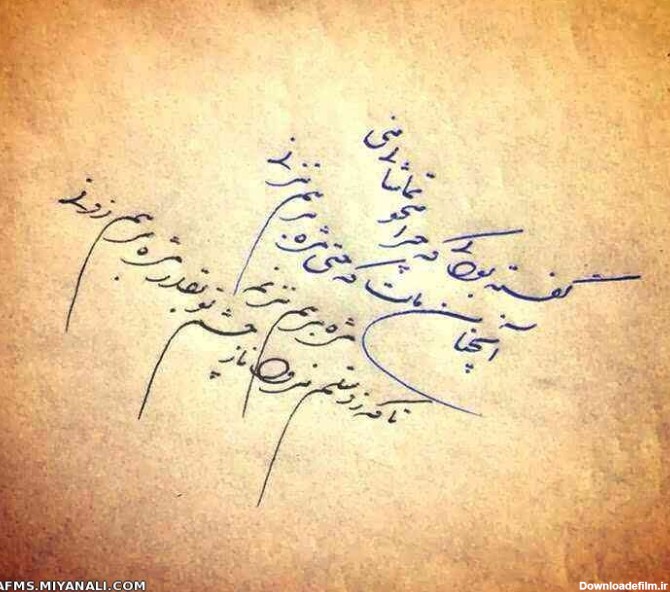 گفته بودی که چرا محو تماشای منی
آنچنان مات که حتی مژه بر هم نزنی
مژه بر هم نزنم
تا که ز دستم نرود ناز چشم تو بقدر مژه بر هم زدنی
AFMS.MIYANALI.COM
Downloadefilm.ir